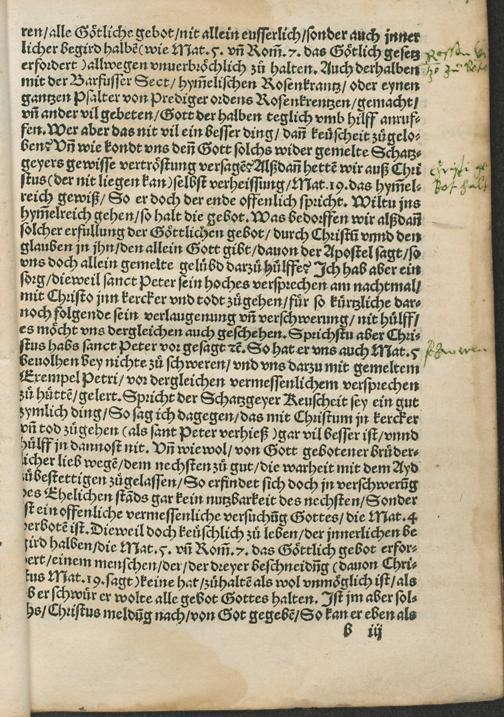 ren/alle Götliche gebot/nit allein eusserlich/sonder auch jnner
licher begird halbē(wie Mat.5. vñ Rom̄.7. das Götlich gesetz
erfordert)allwegen vnuerbröchlich zu halten. Auch derhalben
mit der Barfusser Sect/hym̄elischen Rosenkrantz/oder eynen
gantzen Psalter von Prediger ordens Rosenkrentzen/gemacht/
vñ ander vil gebeten/Gott der halben teglich vmb hilff anruf-
fen. Wer aber das nit vil ein besser ding/dañ keüscheit zügelo-
ben? Vñ wie kondt vns deñ Gott solchs wider gemelte Schatz-
geyers gewisse vertröstung versagē? Alßdañ hettē wir auß Chri
stus(der nit liegen kan)selbst verheissung/Mat.19.das hym̄el-
reich gewiß/So er doch der ende offenlich spricht. Wiltu jns
hym̄elreich gehen/so halt die gebot. Was bedorffen wir alßdañ
solcher erfüllung der Göttlichen gebot/durch Christū vnnd den
glauben in jhn/den allein Gott gibt/dauon der Apostel sagt/so
vns doch allein gemelte gelübd darzü hülffe? Ich hab aber ein
sorg/dieweil sanct Peter sein hoches versprechen am nachtmal/
mit Christo jnn kercker vnd todt zügehen/für so kürtzliche dar-
noch folgende sein verlaugenung vñ schwerung/nit hülff/
es möcht vns dergleichen auch geschehen. Sprichstu aber Chri-
stus habs sanct Peter vor gesagt ⁊c. So hat er vns auch Mat.5
beuolhen bey nichte zü schweren/vnd vns darzü mit gemeltem
Exempel Petri/vor dergleichen vermessenlichem versprechen
zü hüttē/gelert. Spricht der Schatzgeyer Keuscheit sey ein gut
zymlich ding/So sag ich dagegen/das mit Christum jn kercker
vñ tod zügehen(als sant Peter verhieß)gar vil besser ist/vnnd
hülff jn dannost nit. Vñ wie wol/von Gott gebotener brüder-
licher lieb wegē/dem nechsten zü gut/die warheit mit dem Ayd
zü bestettigen zügelassen/So erfindet sich doch in verschwerūg
des Ehelichen stāds gar kein nutzbarkeit des nechsten/Sonder
st ein offenliche vermessenliche versuchūg Gottes/die Mat.4
verbotē ist. Dieweil doch keüschlich zu leben/der jnnerlichen be
gird halben/die Mat.5. vñ Rom̄.7. das Göttlich gebot erfor-
dert/einem menschen/der/der dreyer beschneidnūg(dauon Chri-
tus Mat.19.sagt)keine hat/zühaltē als wol vnmöglich ist/als
b er schwür er wolte alle gebot Gottes halten. Ist jm aber sol-
hs/Christus meldūg nach/von Got gegebē/So kan er eben als
b iij